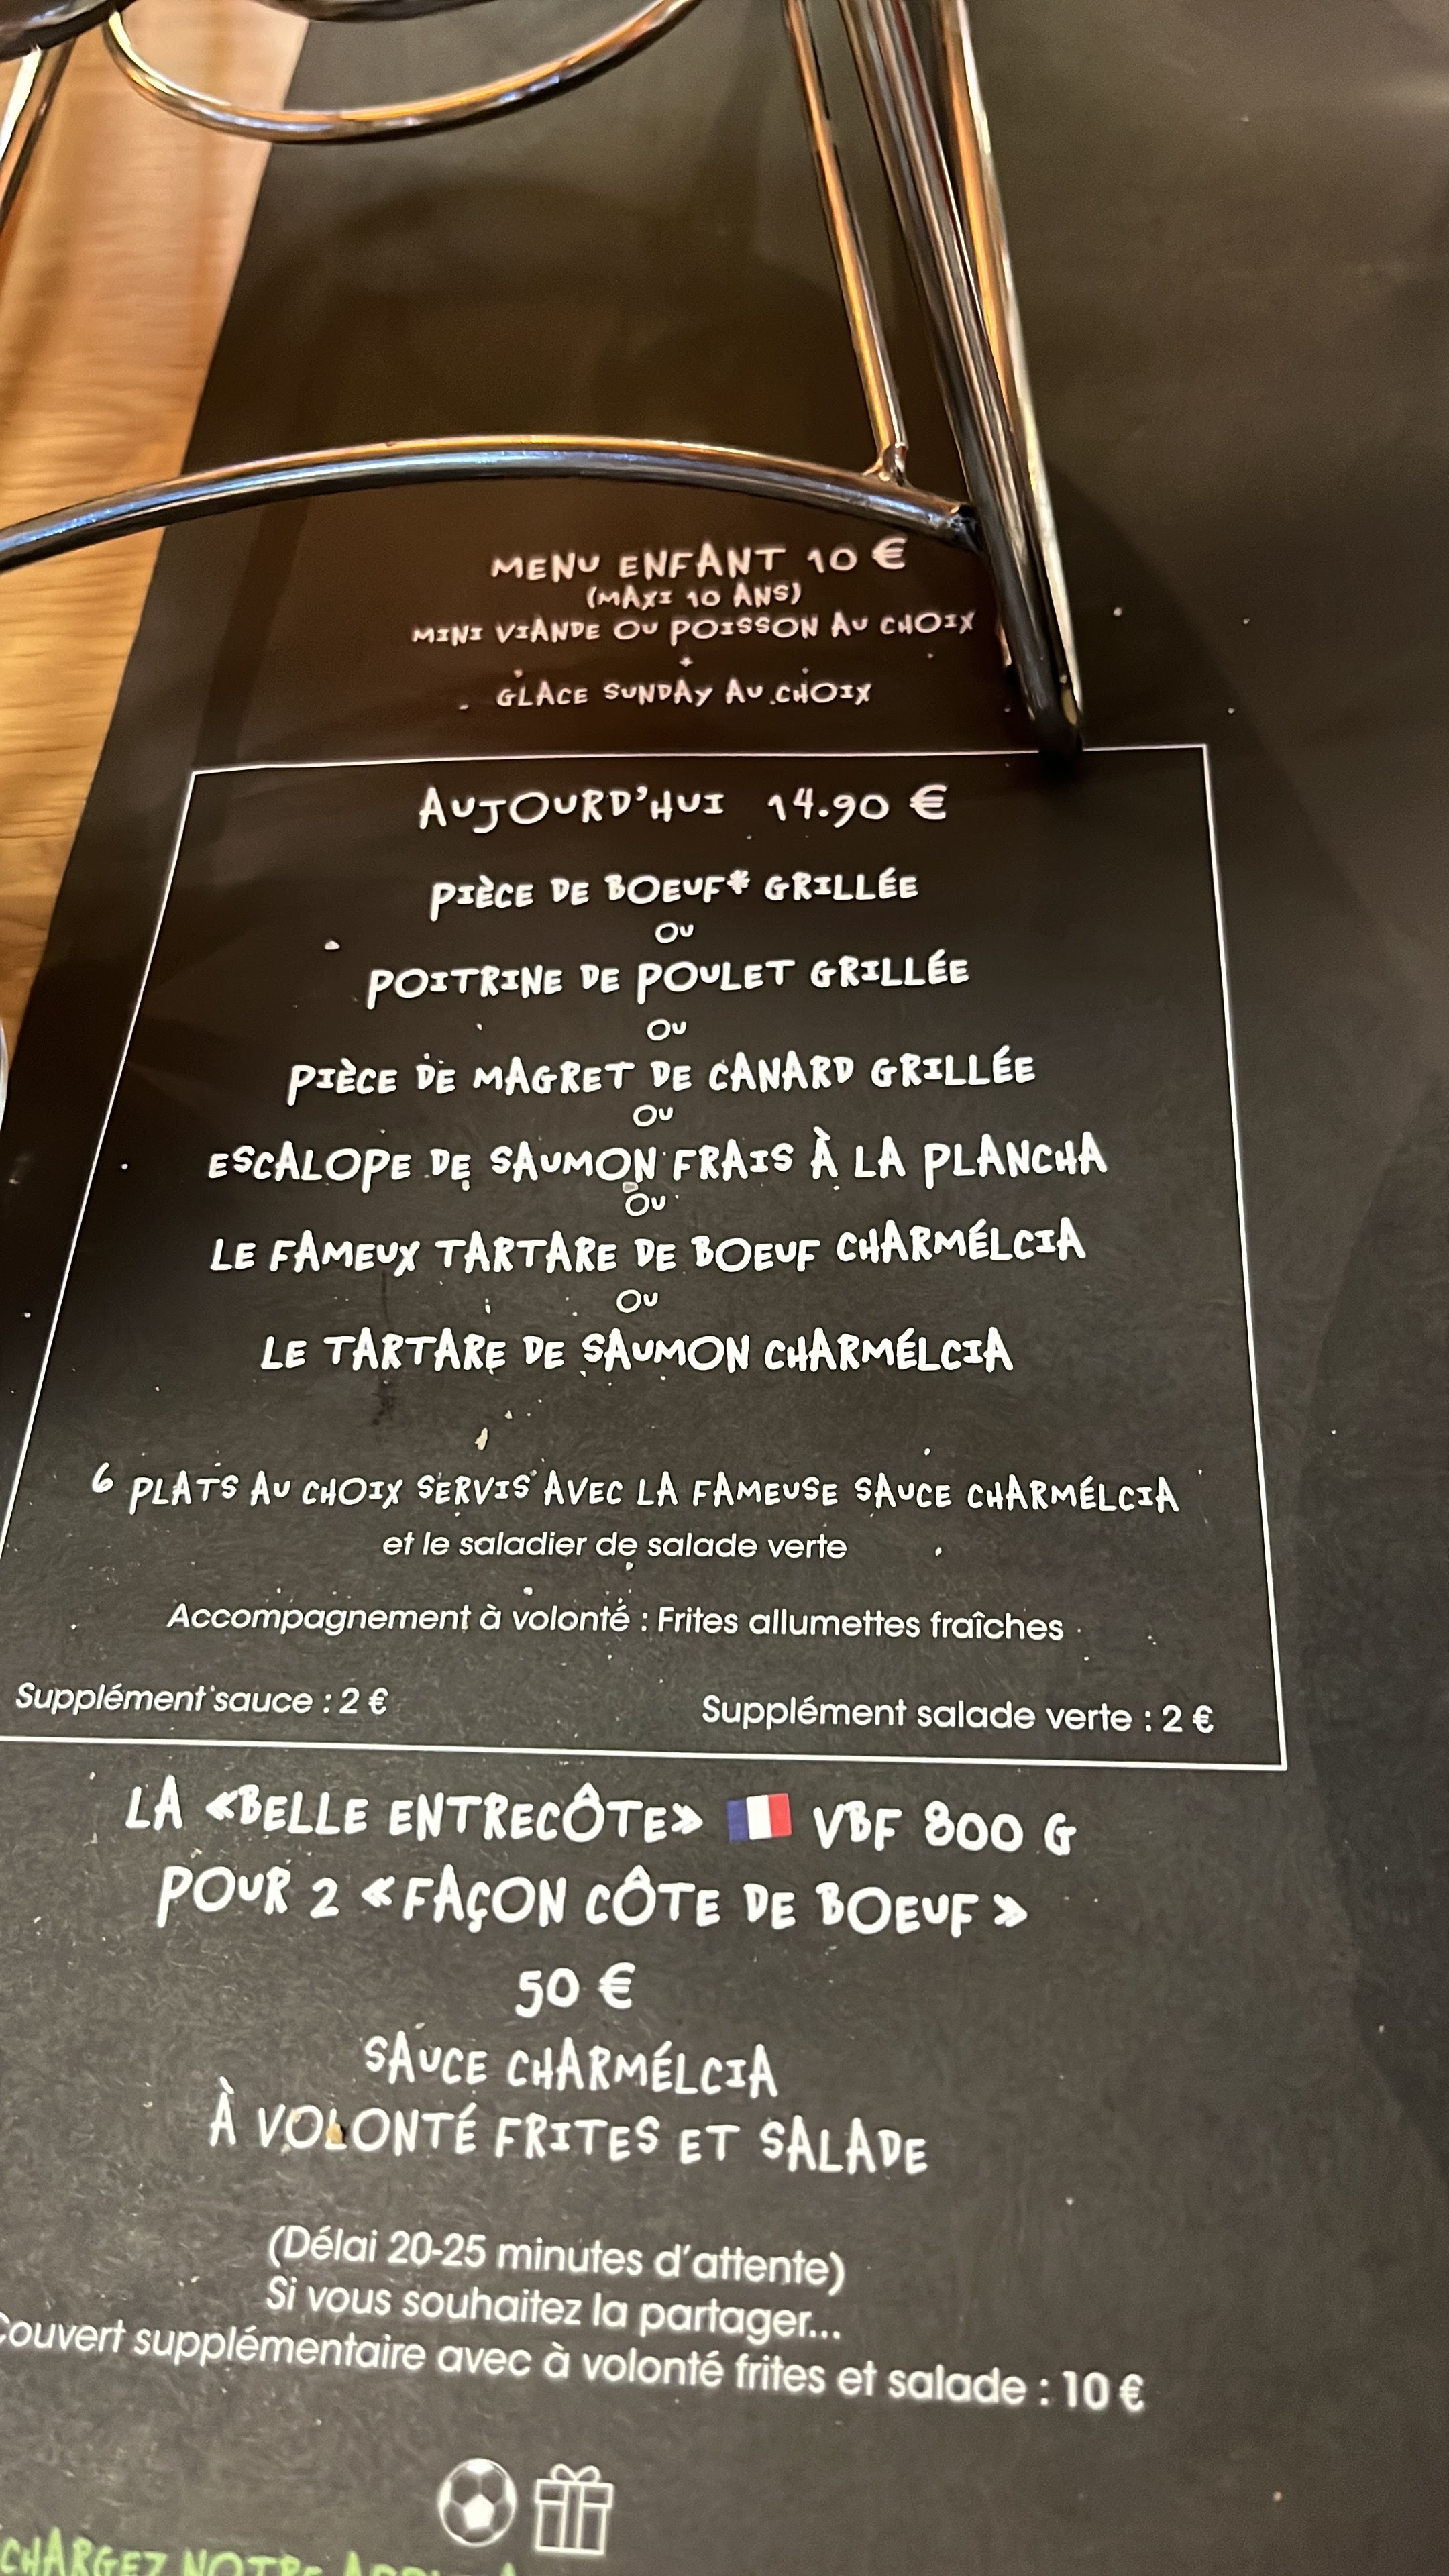 MENU ENFANT 10 €
(MAXI 10 ANS)
MINI VIANDE OU POISSON AU CHOIX
+
GLACE SUNDAY AU CHOIX
AUJOURD'HUI 14.90 €
PIÈCE DE BOEUF* GRILLÉE
OU
POITRINE DE POULET GRILLÉE
OU
PIÈCE DE MAGRET DE CANARD GRILLÉE
OU
ESCALOPE DE SAUMON FRAIS À LA PLANCHA
OU
LE FAMEUX TARTARE DE BOEUF CHARMÉLCIA
OU
LE TARTARE DE SAUMON CHARMÉLCIA
6 PLATS AU CHOIX SERVIS AVEC LA FAMEUSE SAUCE CHARMÉLCIA
et le saladier de salade verte
Accompagnement à volonté : Frites allumettes fraîches
Supplément sauce : 2 € Supplément salade verte : 2 €
LA «BELLE ENTRECÔTE» VBF 800 G
POUR 2 «FAÇON CÔTE DE BOEUF»
50 €
SAUCE CHARMÉLCIA
À VOLONTÉ FRITES ET SALADE
(Délai 20-25 minutes d'attente)
Si vous souhaitez la partager...
Couvert supplémentaire avec à volonté frites et salade : 10 €
CHARGEZ NOTRE